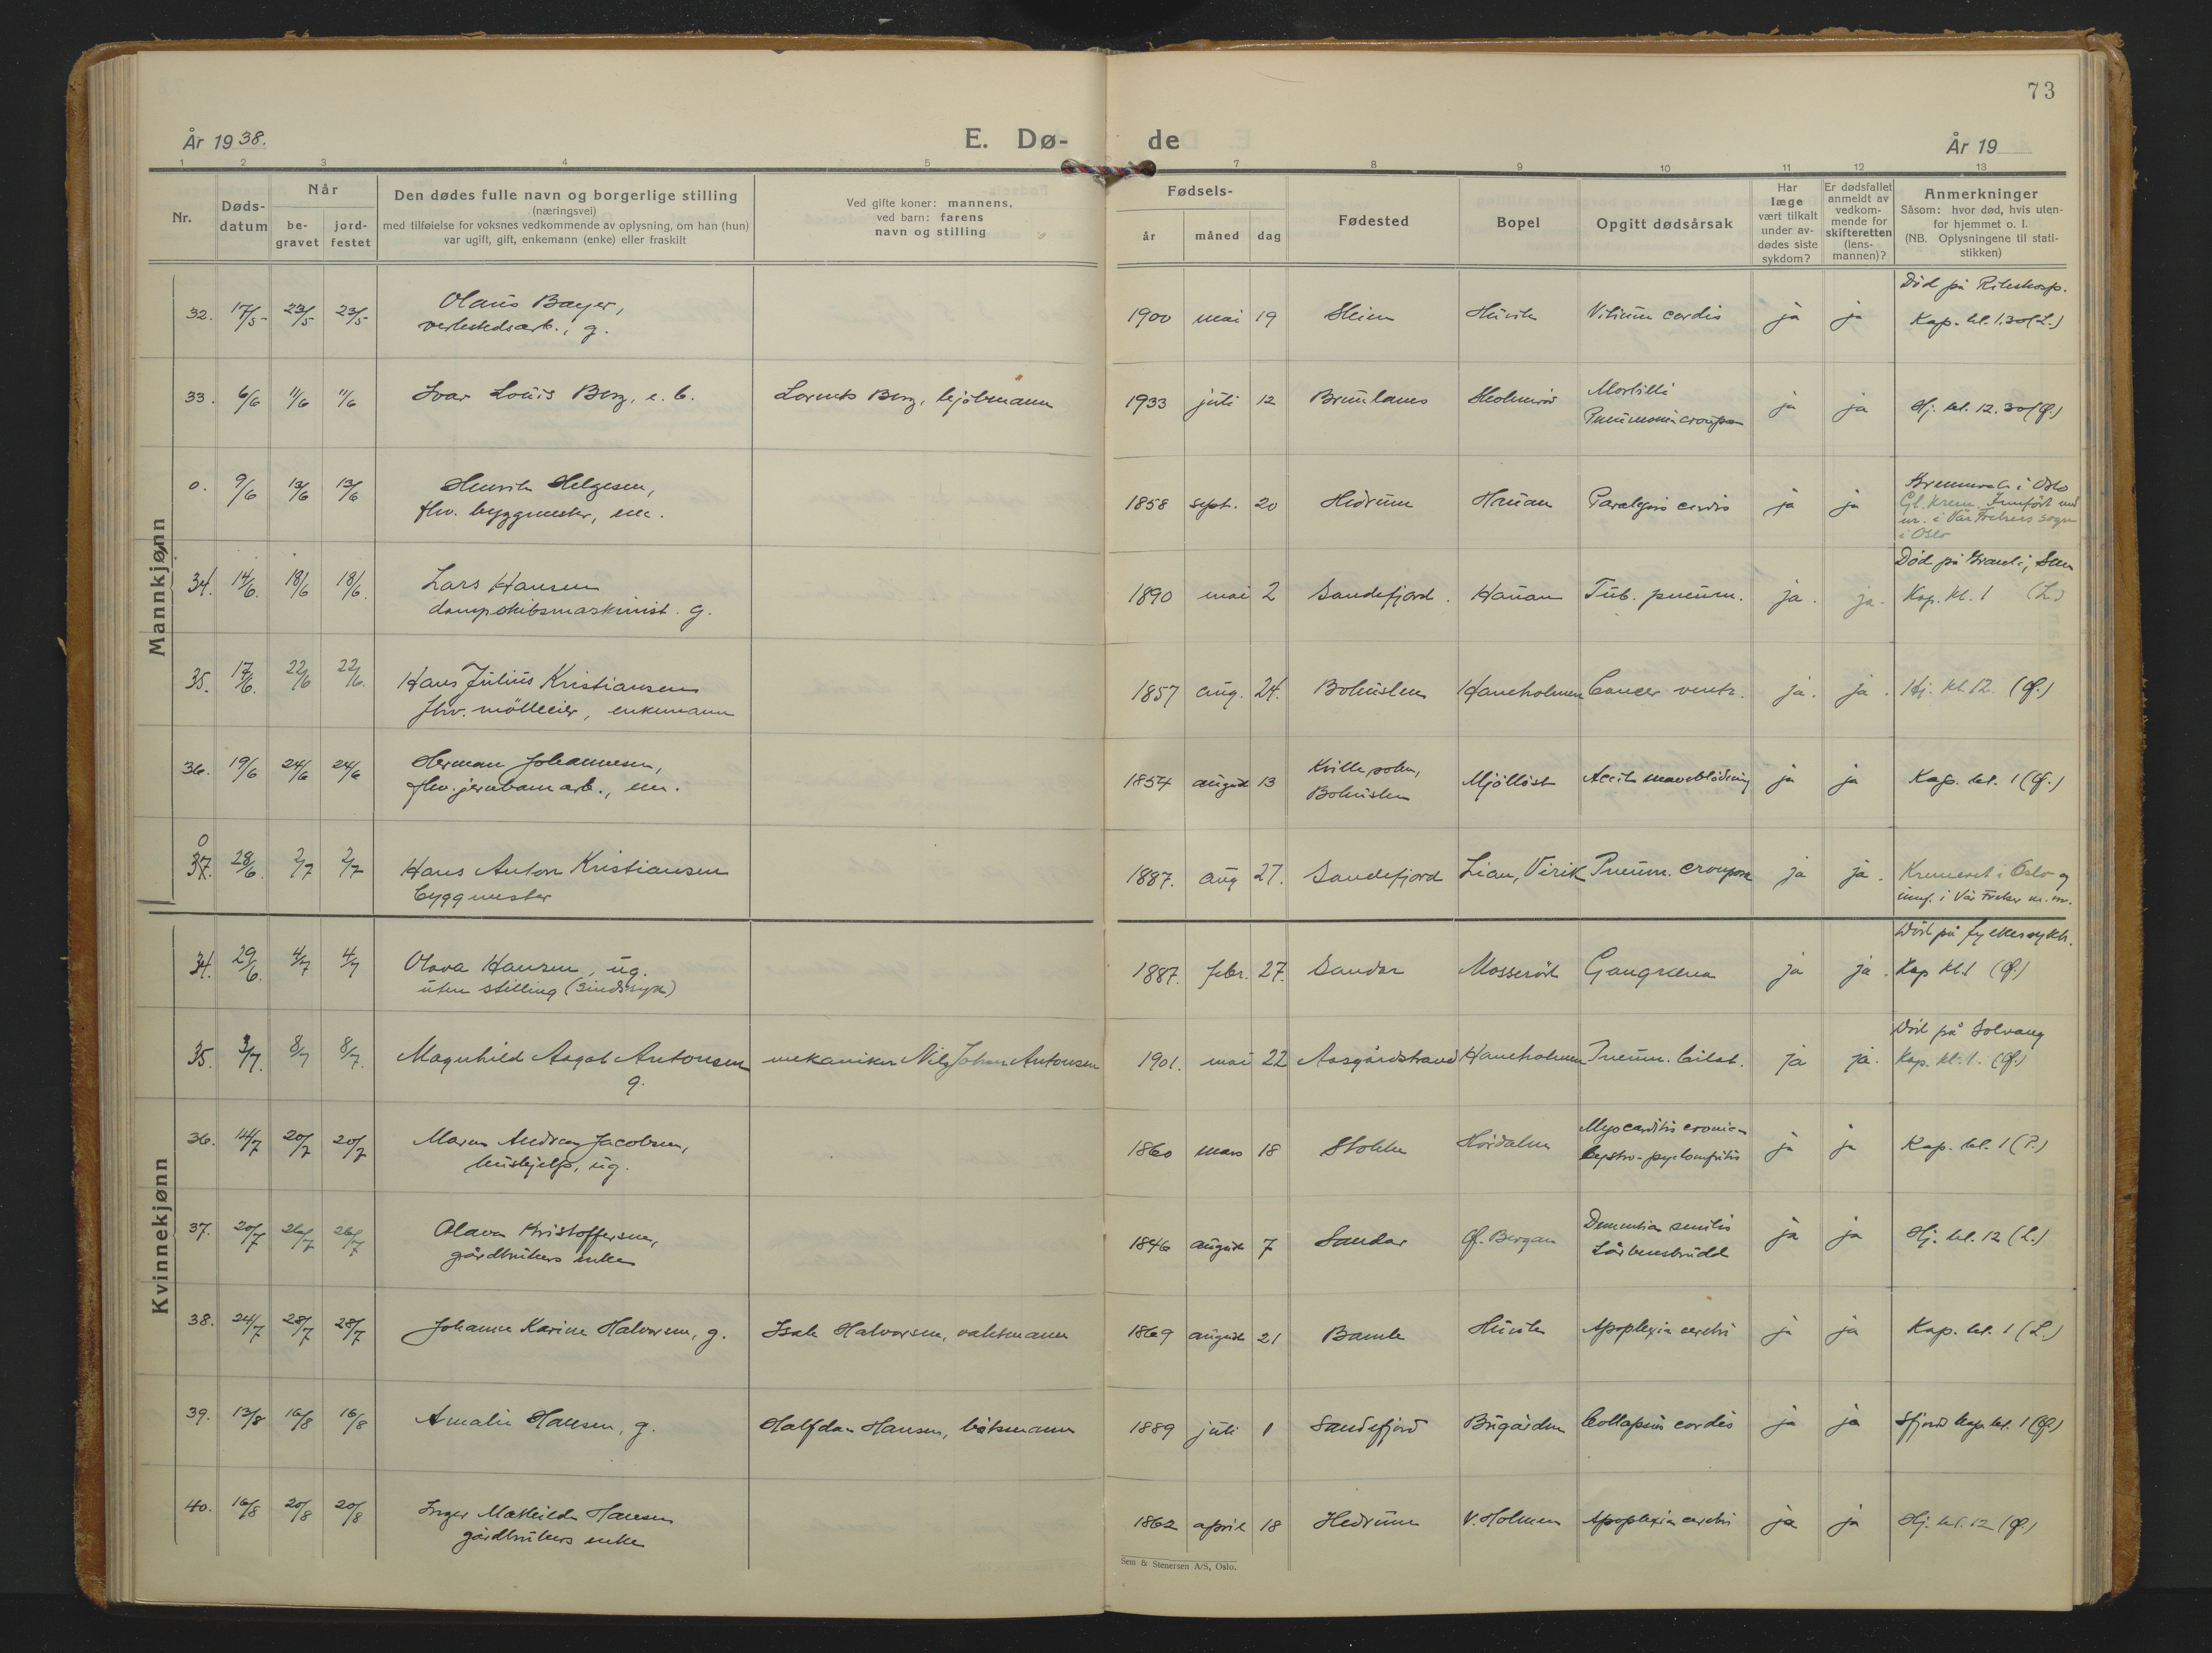 73
År 1938.
E. Dø-
de
År 19
1 2 3 4 5 7 8 9 10 11 12 13
Nr.
Døds-
datum
Når
be-
gravet
jord-
festet
Den dødes fulle navn og borgerlige stilling
(næringsvei)
med tilføielse for voksnes vedkommende av oplysning, om han (hun)
var ugift, gift, enkemann (enke) eller fraskilt
Ved gifte koner: mannens,
ved barn: farens
navn og stilling
Fødsels-
år
måned
dag
Fødested
Bopel
Opgitt dødsårsak
Har
læge
vært tilkalt
under av-
dødes siste
sykdom?
Er dødsfallet
anmeldt av
vedkom-
mende for
skifteretten
(lens-
mannen)?
Anmerkninger
Såsom: hvor død, hvis uten-
for hjemmet o. l.
(NB. Oplysningene til stati-
stikken)
Mannkjønn
Død på
32. 17/5 23/5 23/5 Olaus Bayer, 1900 mai 19 Skien Huvik Vitium cordis ja ja Kap. kl. 1.30 (L.)
verkstedsarb., g.
33. 6/6 11/6 11/6 Ivar Louis Berg, e. b. Lorents Berg, 1933 juli 12 Brunlanes Morbilli ja ja Hj. kl. 12.30 (Q.)
Pneumonia crouposa
0. 9/6 13/6 13/6 Henrik Helgesen, 1858 sept. 20 Hedrum Hauan Paralysis cordis ja ja i Oslo
fhv. byggmester, em. Gl. krem. Innført med
nr. i Vår Frelsers sogn
i Oslo
Død på Granli, Sem
34. 14/6. 18/6 18/6. Lars Hansen 1890 mai 2 Sandefjord. Hauan Tub. pneum. ja. ja. Kap. kl. 1 (L.)
dampskibsmaskinist. g.
35. 17/6. 22/6 22/6. Hans Julius Kristiansen 1857 aug. 24. Bohuslen Haneholmen Cancer ventr. ja. ja. Hj. kl. 12. (Q.)
fhv. mölleeier, enkemann
36. 19/6 24/6 24/6 Herman Johannesen, 1854 august 13 Kville sokn, Mjölløst maveblödning ja ja Kap. kl. 1 (Q.)
fhv. jernbanearb., em. Bohuslen
0
37. 28/6. 2/7 2/7 Hans Anton Kristiansen 1887. aug 27. Sandefjord Lian, Virik Pneum. crouposa ja ja. Kremert i Oslo og
byggmester innf. i Vår Frelser m. nr.
Kvinnekjønn
Död på fylkessykh.
34. 29/6. 4/7 4/7 Olava Hansen, ug. 1887. febr. 27. Sandar Mosserød Gangrena ja ja. Kap kl. 1 (Q.)
uten stilling (sindssyk)
Död på Solvang
35. 3/7. 8/7 8/7. Magnhild Aagot Antonsen mekaniker Nils Johan Antonsen 1901. mai 22 Aasgårdstrand Haneholmen Pneum. bilat. ja ja. Kap. kl. 1. (Q.)
g.
36. 14/7 20/7 20/7 Maren Andrea Jacobsen, 1860 mars 18 Stokke Hordalen Myocarditis cronica ja ja Kap. kl. 1 (P.)
hushjelp, ug.
37. 20/7 26/7 26/7 Olava Kristoffersen, 1846 august 7 Sandar Q. Bergan Dementia senilis ja ja Hj. kl. 12 (L.)
gårdbrukers enke Lårbensbrudd
38. 24/7 28/7 28/7 Johanne Karine Halvorsen, g. Isak Halvorsen, vaktmann 1869 august 21 Bamle Huvik Apoplexia cerebri ja ja Kap. kl. 1 (L.)
39. 13/8 16/8 16/8 Amalie Hansen, g. Halfdan Hansen, båtsmann 1889 juli 1 Sandefjord Bugården Collapsus cordis ja ja Sfjord kap. kl. 1 (Q.)
40. 16/8 20/8 20/8 Inger Mathilde Hansen 1862 april 18 Hedrum V. Holmen Apoplexia cerebri ja ja Hj. kl. 12 (Q.)
gårdbrukers enke
Sem & Stenersen A/S, Oslo.